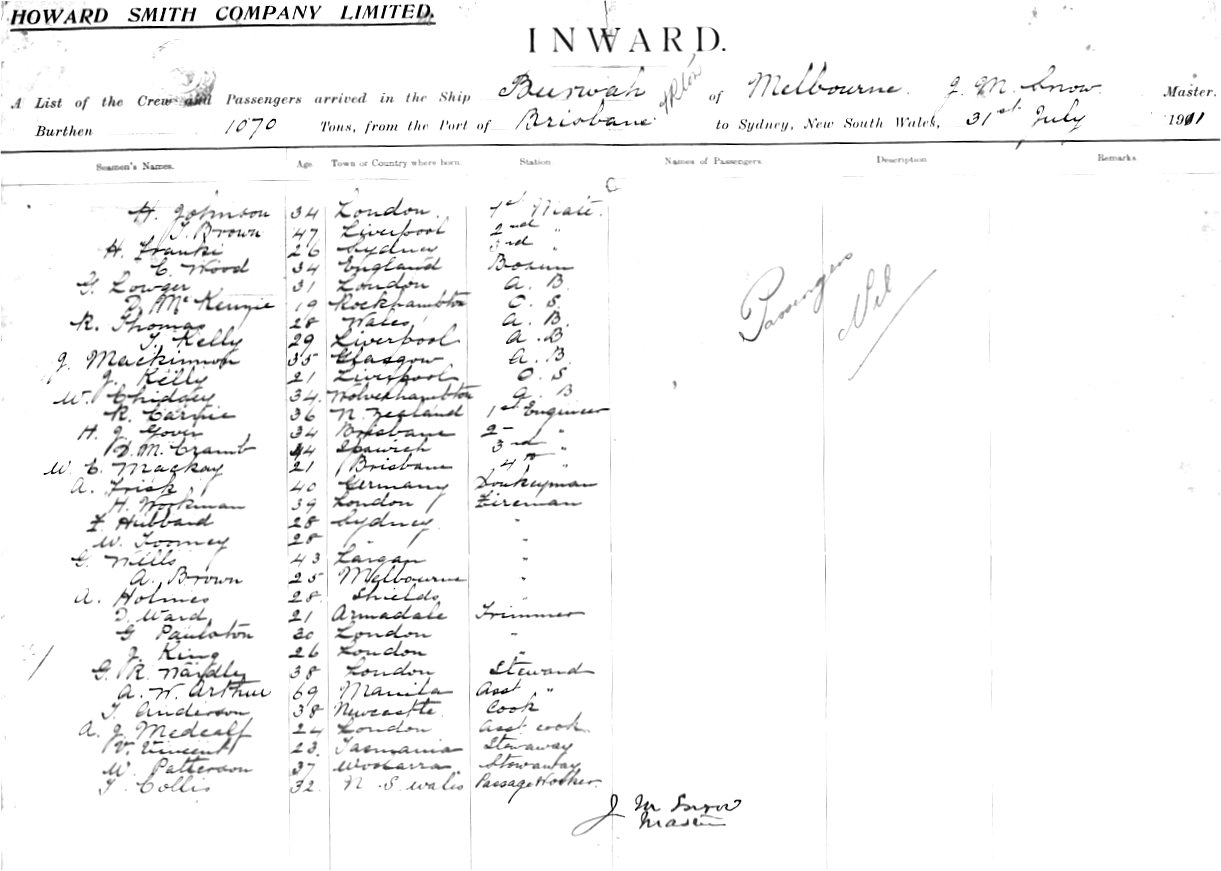 HOWARD SMITH COMPANY LIMITED.
INWARD.
A List of the Crew and Passengers arrived in the Ship Burwah of Melbourne. J. M. Snow Master.
Burthen 1070 Tons, from the Port of Brisbane to Sydney, New South Wales, 31st July 1911
Seamen's Names. Age. Town or Country where born. Station Names of Passengers. Description Remarks
H. Johnson 34 London. 1st Mate.
T. Brown 47 Liverpool 2nd "
H. Franki 26 Sydney 3rd "
C. Wood 34 England Bosun
G. Lowger 31 London A. B.
D. McKenzie 19 Rockhampton O. S.
R. Thomas 28 Wales A. B.
T. Kelly 29 Liverpool A. B
J. Mackinnon 35 Glasgow A. B
J. Kelly 21 Liverpool O. S
W. Chiddey 34. Wolverhampton A. B
R. Carnie 36 N. Zealand 1st Engineer
H. J. Gover 34 Brisbane 2 "
D. M. Cramb 44 Ipswich 3rd "
W. C. Mackay 21 Brisbane 4th "
A. Frisk 40 Germany Donkeyman
H. Workman 39 London Fireman
F. Hubbard 28 Sydney "
W. Toomey 28 " "
G. Wills 43 Largan "
A. Brown 25 Melbourne "
A. Holmes 28. Shields "
D. Ward 21 Armadale Trimmer
G Paulston 30 London "
J. King 26 London "
G. R. Wardley 38 London Steward
A. W. Arthur 69 Manila Asst "
T. Anderson 38 Newcastle Cook
A. J. Medcalf 24 London Asst cook.
V. Vincent 23. Tasmania Stowaway
W. Patterson 37 Woolarra Stowaway
T. Collis 32. N. S. Wales Passage Hooker.
Passengers
Nil
J M Snow
Master